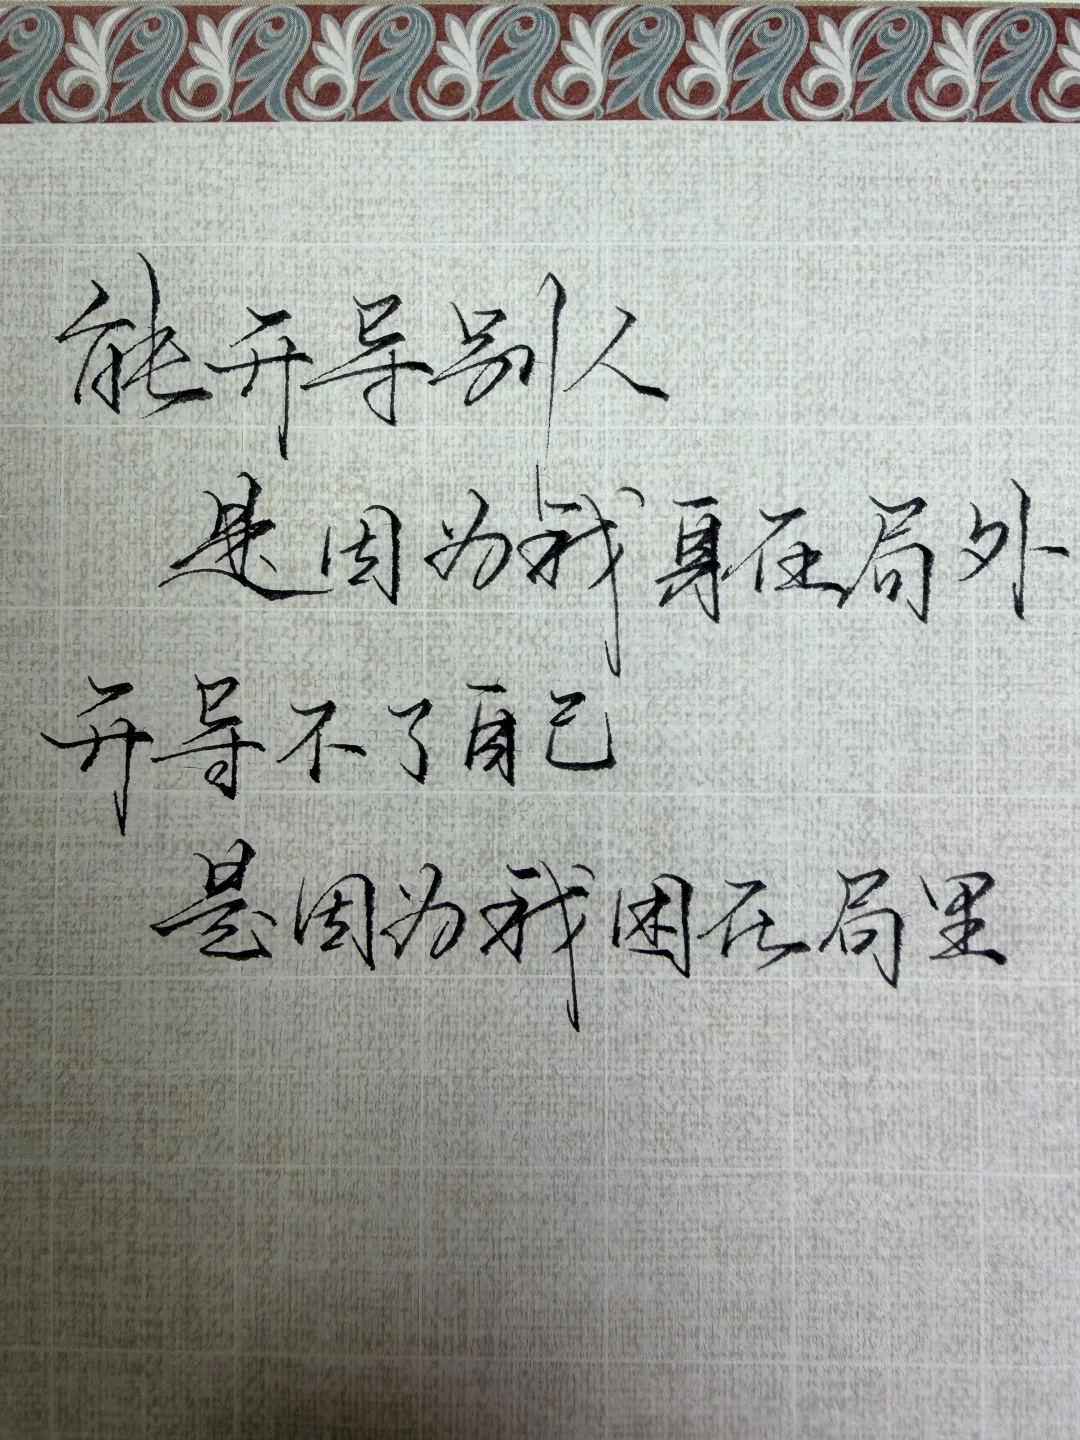 能开导别人
是因为我身在局外
开导不了自己
是因为我困在局里